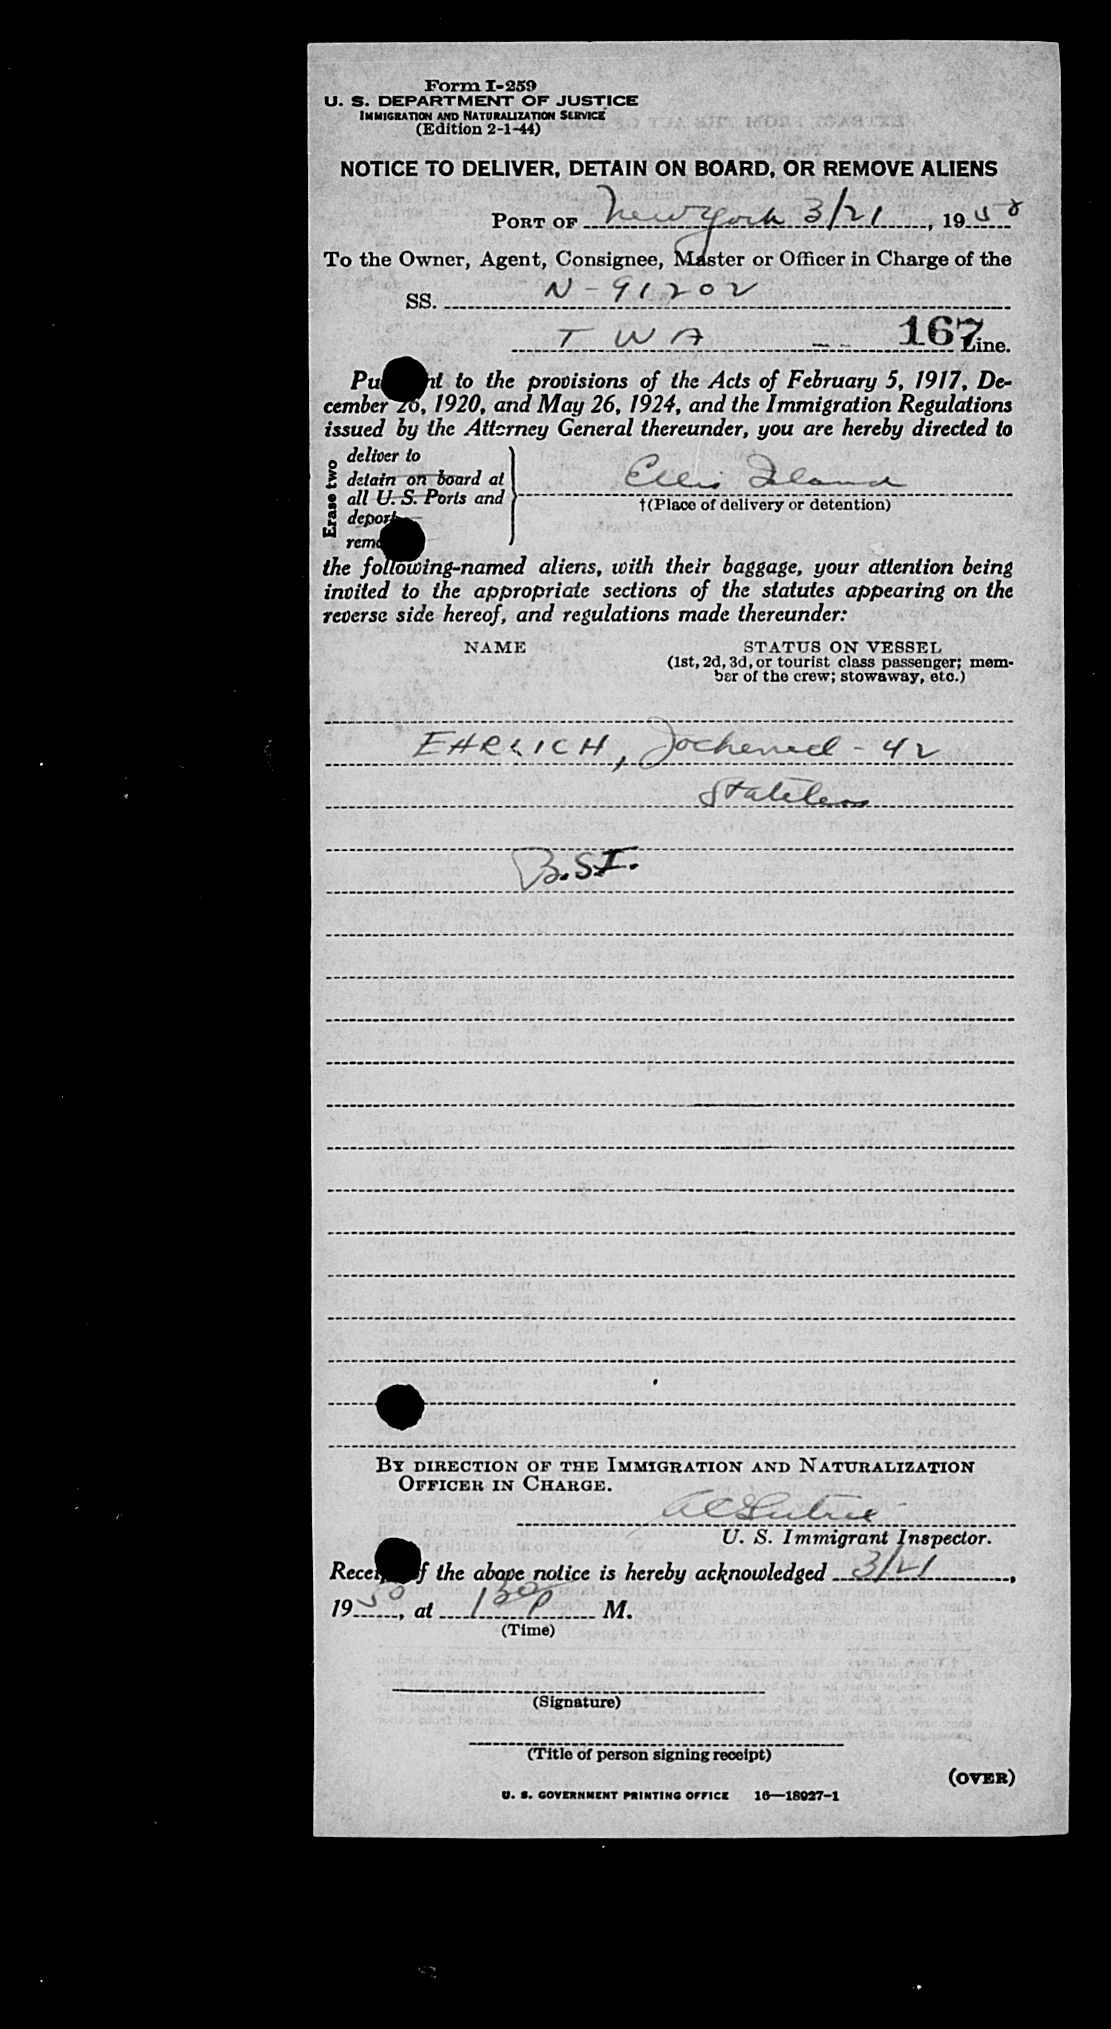 Form I-259
U. S. DEPARTMENT OF JUSTICE
IMMIGRATION AND NATURALIZATION SERVICE
(Edition 2-1-44)
NOTICE TO DELIVER, DETAIN ON BOARD, OR REMOVE ALIENS
PORT OF New York 3/21, 1950
To the Owner, Agent, Consignee, Master or Officer in Charge of the
SS. N-91202
TWA 167 Line.
Pu nt to the provisions of the Acts of February 5, 1917, De-
cember 26, 1920, and May 26, 1924, and the Immigration Regulations
issued by the Attorney General thereunder, you are hereby directed to
Erase two
deliver to
detain on board at
all U. S. Ports and
deport
remo
Ellis Island
†(Place of delivery or detention)
the following-named aliens, with their baggage, your attention being
invited to the appropriate sections of the statutes appearing on the
reverse side hereof, and regulations made thereunder:
NAME STATUS ON VESSEL
(1st, 2d, 3d, or tourist class passenger; mem-
ber of the crew; stowaway, etc.)
EHRLICH, - 42
Stateless
B.S.I.
BY DIRECTION OF THE IMMIGRATION AND NATURALIZATION
OFFICER IN CHARGE.
U. S. Immigrant Inspector.
Recei f the above notice is hereby acknowledged 3/21,
1950, at 130 P M.
(Time)
(Signature)
(Title of person signing receipt)
(OVER)
U. S. GOVERNMENT PRINTING OFFICE 16—18927-1